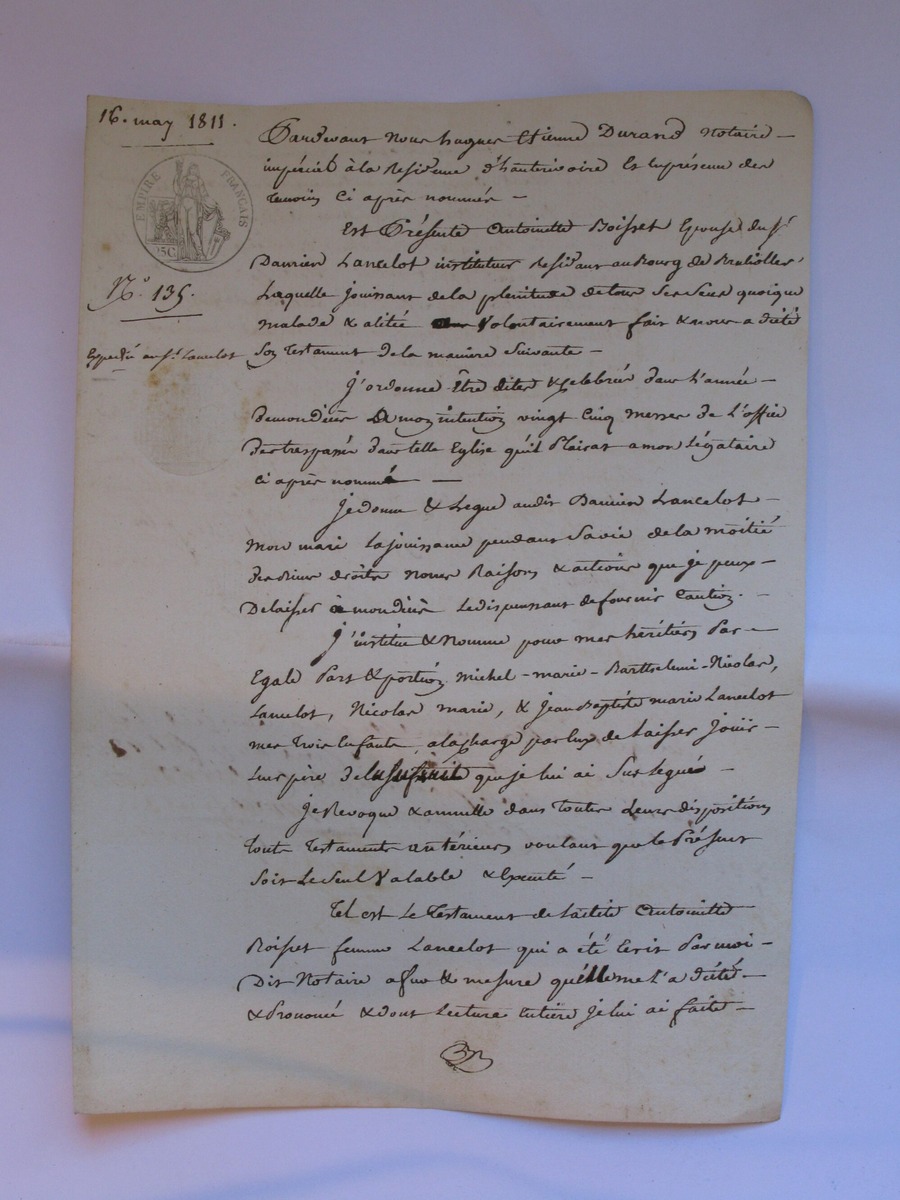 16. may 1811.
EMPIRE FRANÇAIS
25C
N.° 135.
Expedié au sr. Lancelot
Pardevant Nous hugues Etienne Durand notaire
impérial à la Residence d'hauterivoire Et en présence des
temoins Ci après nommés
Est Présente Antoinette Boisset Epouse du sr
Damien Lancelot instituteur Residant au Bourg de Brulioller
Laquelle Jouissant de la plenitude de tous Ses Sens quoique
malade & alitée Volontairement fait & nous a dicté
Son Testament de la maniere Suivante
J'ordonne Être dites & Celebrés dans L'année
de mon décès à mon intention vingt Cinq messes de L'office
des trespassés dans telle Eglise qu'il Plairat a mon Légataire
Ci après nommé
Je donne & Legue audit Damien Lancelot
Mon mari La jouissance pendant Sa vie de la moitié
des biens droits noms Raisons & actions que je peux
Delaisser à mon décès Le dispensant de fournir Caution.
J'institue & Nomme pour mes héritiers Par
Egale Part & portion Michel-marie-Barthelemi-Nicolas,
Lancelot, Nicolas marie, & Jean Baptiste marie Lancelot
mes Trois Enfants, a la Charge par Eux de Laisser Jouir
Leur père de l'usufruit que je lui ai Sus Legué
Je Revoque & annulle dans toutes Leurs dispositions
tous Testaments antérieurs voulant que le Présent
Soit Le Seul Valable & Executé
Tel est Le Testament de Ladite Antoinette
Boisset femme Lancelot qui a été Ecrit Par moi
Dit Notaire a fur & mesure qu'elle me l'a dicté
& Prononcé & dont Lecture entiere Je lui ai faite